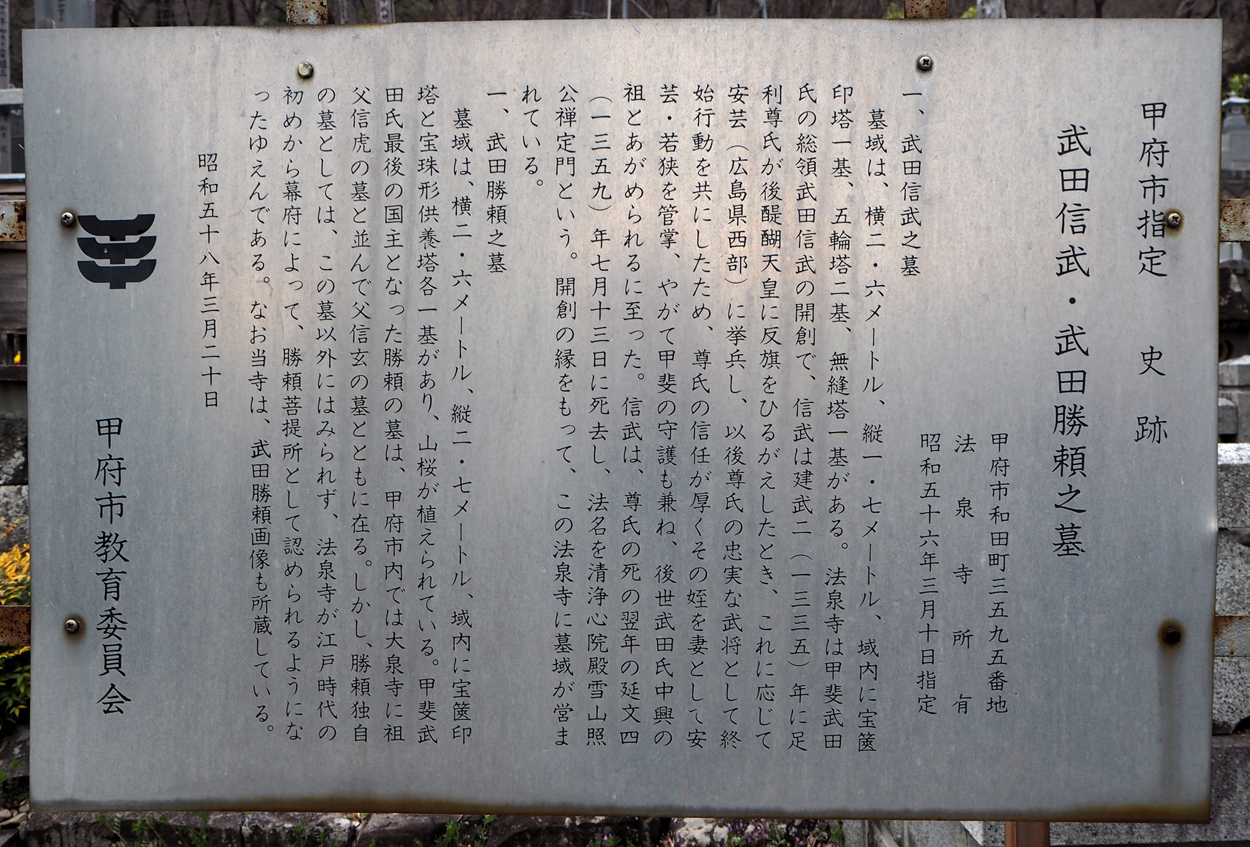 甲府市指定　史　跡
武田信武・武田勝頼之墓
甲府市和田町三五九五番地
法泉寺所有
昭和五十六年三月十日指定
一、武田信武之墓
墓域は、横二・六メートル、縦一・七メートル、域内に宝篋
印塔一基、五輪塔二基、無縫塔一基がある。法泉寺は甲斐武田
氏の総領武田信武の開創で、信武は建武二（一三三五）年に足
利尊氏が後醍醐天皇に反旗をひるがえしたとき、これに応じて
安芸（広島県西部）に挙兵し、以後尊氏の忠実な武将として終
始行動を共にしたため、尊氏の信任が厚くその姪を妻として安
芸・若狭を管掌、やがて甲斐の守護も兼ね、後世武田氏中興の
祖とあがめられるに至った。信武は、尊氏の死の翌年の延文四
（一三五九）年七月十三日に死去し、法名を清浄心院殿雪山照
公禅定門という。開創の縁をもって、この法泉寺に墓域が営ま
れている。
一、武田勝頼之墓
墓域は、横二・六メートル、縦二・七メートル、域内に宝篋印
塔と宝珠形供養塔各一基があり、山桜が植えられている。甲斐武
田氏最後の国主となった勝頼の墓は、甲府市内では大泉寺に祖
父信虎の墓と並んで父信玄の墓とともに在る。しかし、勝頼独自
の墓としては、この墓以外にはみられず、法泉寺が江戸時代の
初めから幕府によって、勝頼菩提所として認められるようにな
ったゆえんである。なお当寺は、武田勝頼画像も所蔵している。
昭和五十八年三月二十日
甲府市教育委員会